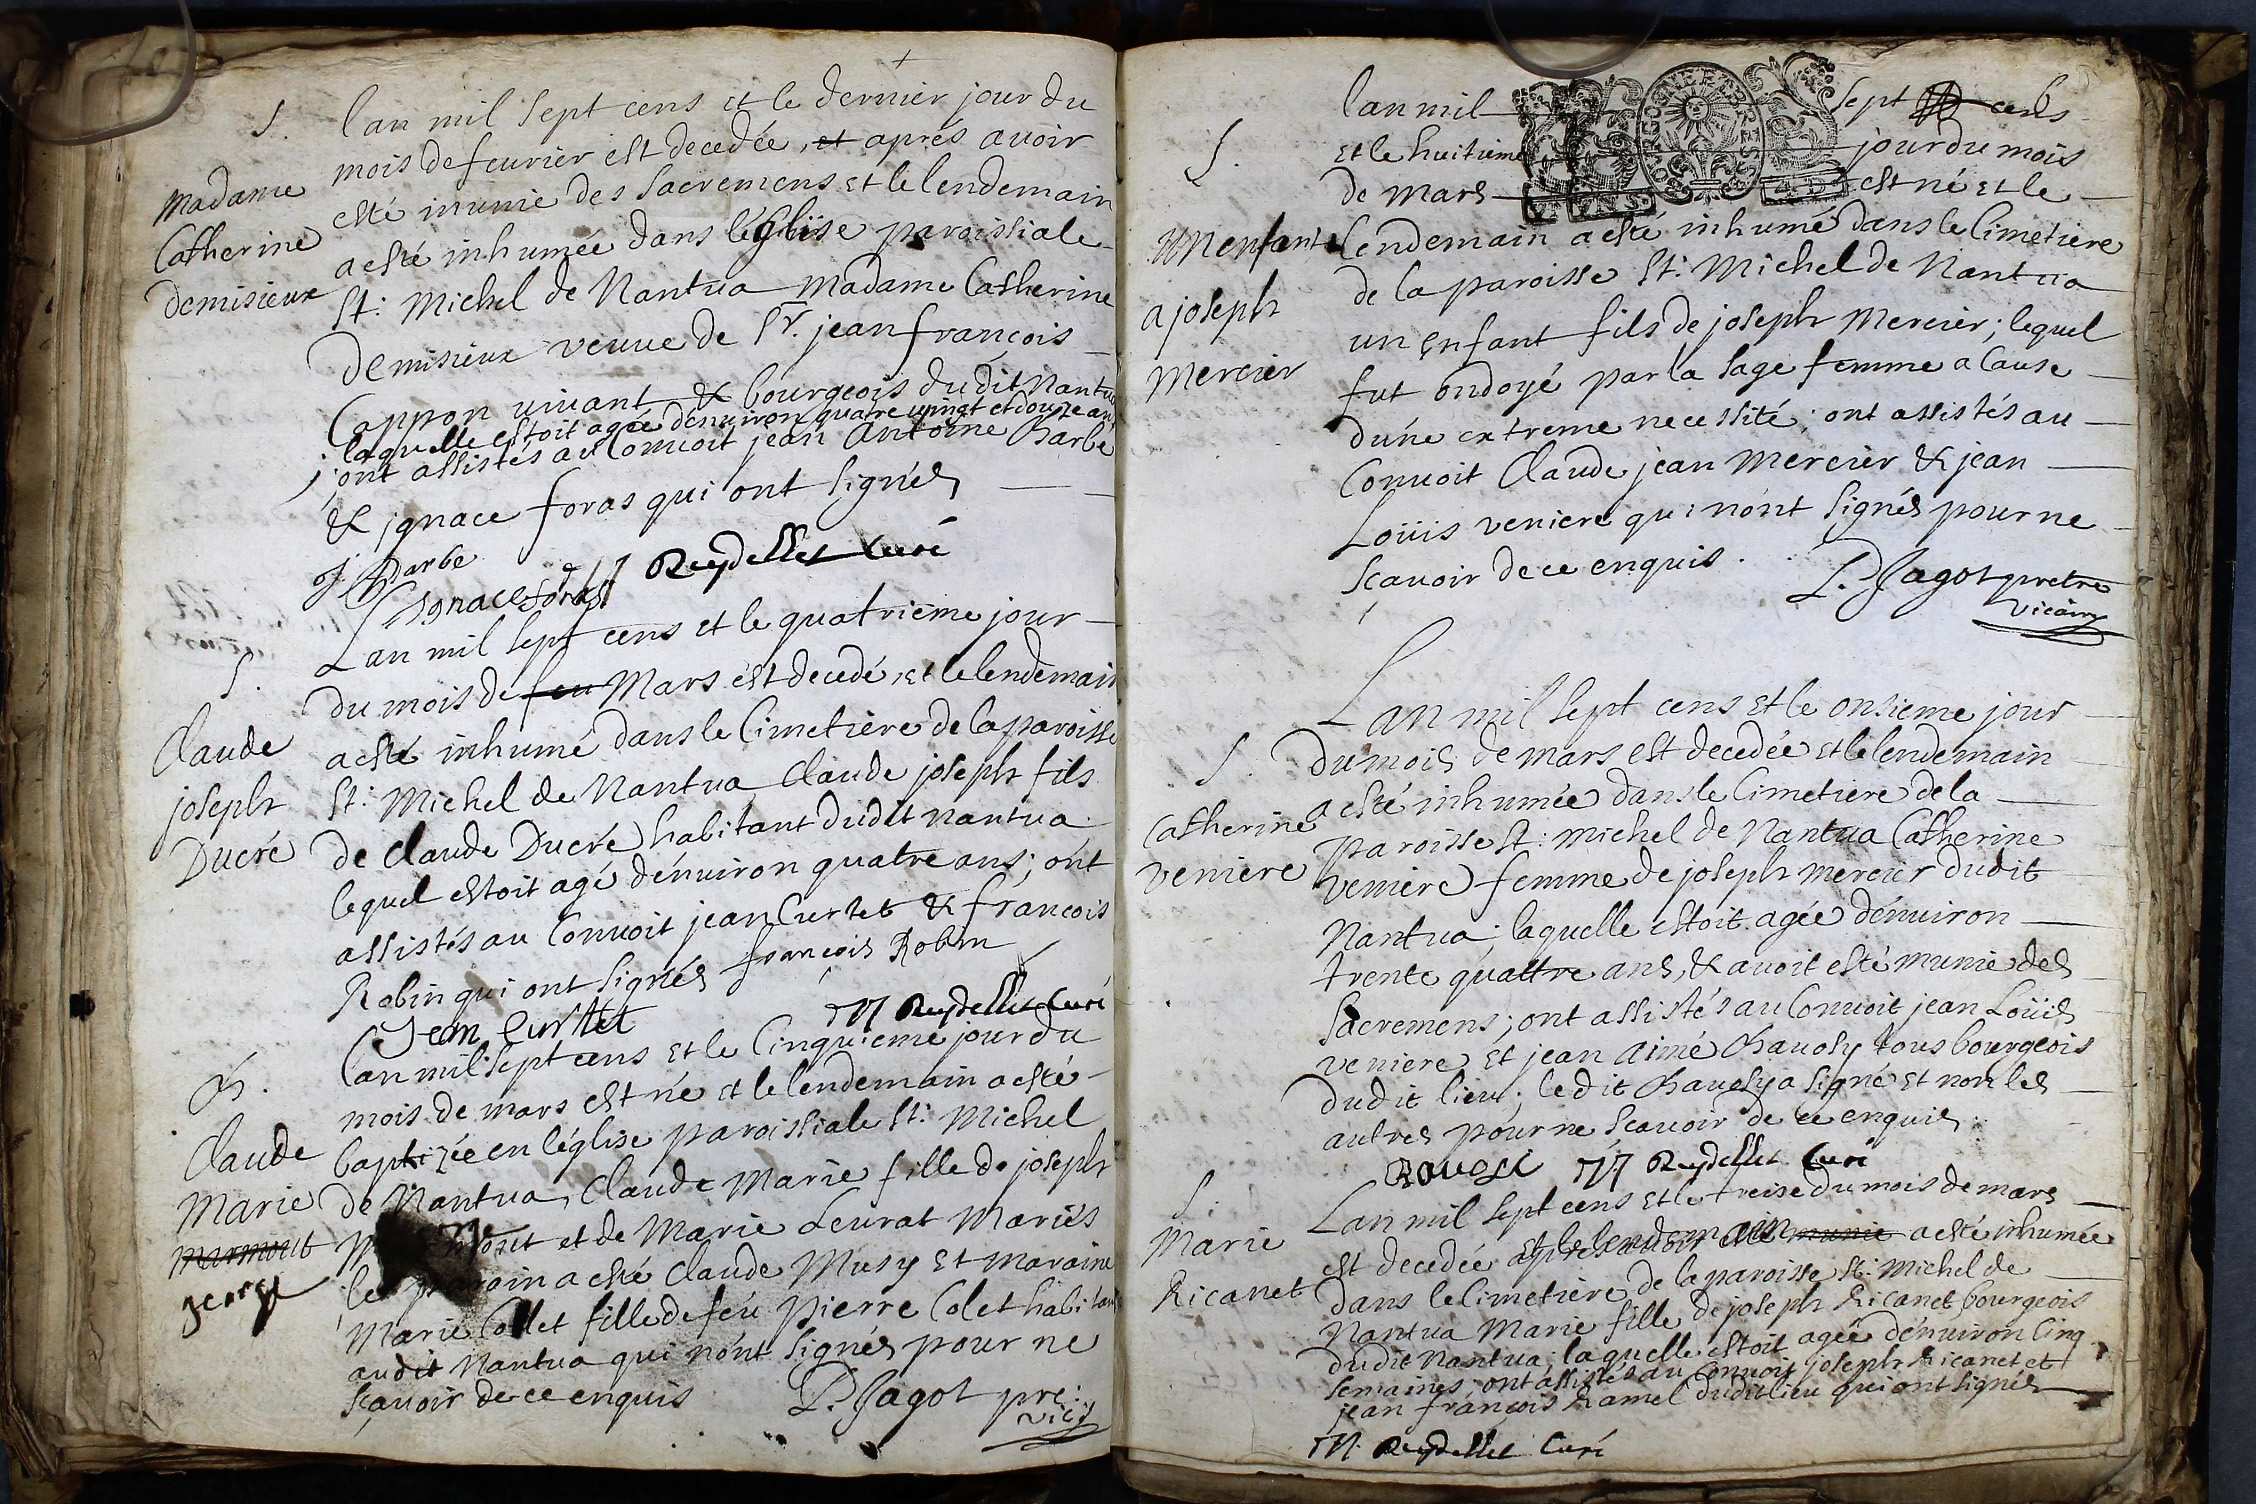 S.
Madame
Catherine
demisieux
lan mil sept cens et le dernier jour du
mois de feurier est decedée, et aprés auoir
esté munie des sacremens et le lendemain
a esté inhumée dans léglise paroissiale
St: Michel de Nantua Madame Catherine
demisieux veuue de Sr. jean françois
Cappon uiuant & bourgeois dudit Nantua
laquelle estoit agée denuiron quatre uingt et douze ans
; ont assistés au Conuoit jean Antoine Barbe
& jgnace foras qui ont signés
j Barbe
Ignace foras
M Reydellet Curé
S.
Claude
joseph
Ducré
Lan mil sept cens et le quatriéme jour
du mois de feu Mars est decedé, et le lendemain
a esté inhumé dans le Cimetiere de la paroisse
St: Michel de Nantua Claude joseph fils
de Claude Ducré habitant dudit nantua
lequel estoit agé dénuiron quatre ans; ont
assistés au Conuoit jean Curtet & francois
Robin qui ont signés françois Robin
Jean Curtet
M Reydellet Curé
B.
Claude
Marie
marmout
george
lan mil sept cens et le Cinquieme jour du
mois de mars est né et le lendemain a esté
baptizée en léglise paroissiale St: Michel
de Nantua, Claude Marie fille de joseph
et de Marie Leurat Mariés
le parrain a esté Claude Musy et maraine
Marie Collet fille de feu pierre Colet habitans
audit Nantua qui nont signés pour ne
sçauoir de ce enquis P. Jagot pre:
vicy
S.
UN enfant
a joseph
Mercier
lan mil sept cens
et le huitiéme jour du mois
de Mars est né et le
BOURGOGNE BRESSE
lendemain a esté inhumé dans le Cimetiere
de la paroisse St: Michel de Nantua
un enfant fils de joseph Mercier; lequel
fut ondoyé par la sage femme a Cause
dune extreme necessité; ont assistés au
Conuoit Claude jean Mercier & jean
Loüis veniere qui nont signés pour ne
sçauoir de ce enquis.
P. Jagot pretre
vicaire
S.
Catherine
veniere
Lan mil sept cens et le onsieme jour
du mois de mars est decedée et le lendemain
a esté inhumée dans le Cimetiere de la
paroisse St: michel de Nantua Catherine
veniere femme de joseph mercier dudit
Nantua; laquelle estoit agée dénuiron
trente quattre ans, & auoit esté munie des
sacremens; ont assistés au Conuoit jean Loüis
veniere et jean aimé Bauosy tous bourgeois
dudit lieu; ledit Bauosy a signé et non les
autres pour ne sçauoir de ce enquis
Bauosi M Reydellet Curé
S.
Marie
Ricanet
Lan mil sept cens et le treise du mois de mars
est decedée et le lendemain munie a esté inhumée
dans le Cimetiere de la paroisse St: Michel de
Nantua Marie fille de joseph Ricanet bourgeois
dudit Nantua; laquelle estoit agée dénuiron Cinq
semaines; ont assistés au Conuoit joseph Ricanet et
jean françois Ramel dudit lieu qui ont signés
M. Reydellet Curé